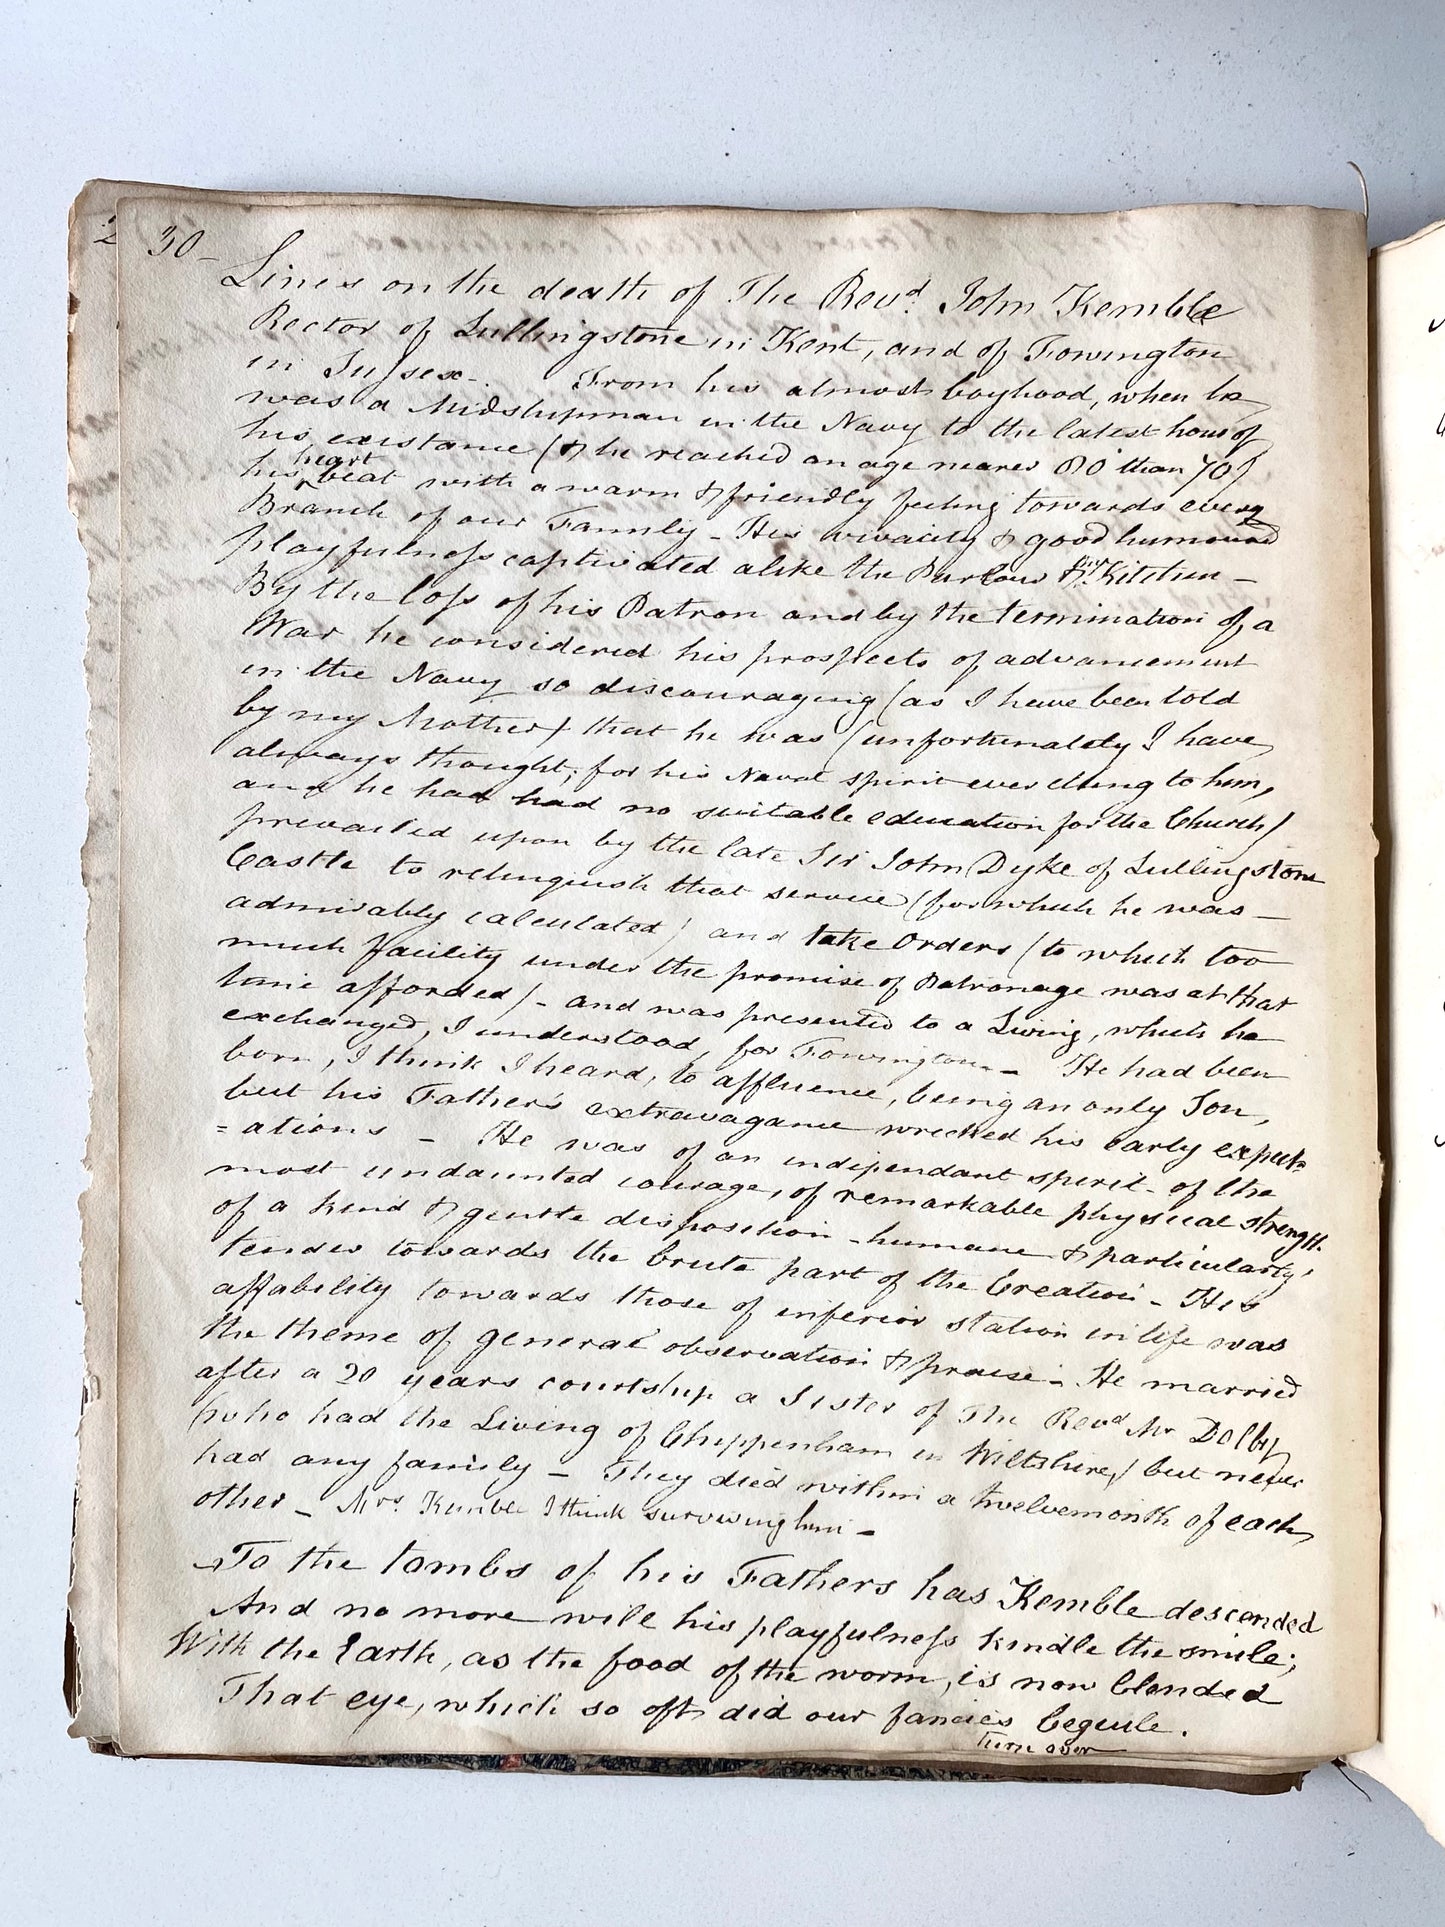 30-
Lines on the death of The Revd. John Kemble
Rector of Lullingstone in Kent, and of Fowington
in Sussex-. From his almost boyhood, when he
was a Midshipman in the Navy to the latest hour of
his existance (& he reached an age nearer 80 than 70)
his heart beat with a warm & friendly feeling towards every
Branch of our Family - His vivacity & good humoured
playfulness captivated alike the Parlour & the Kitchen -
By the loss of his Patron and by the termination of a
War he considered his prospects of advancement
in the Navy so discouraging (as I have been told
by my Mother) that he was (unfortunately I have
always thought, for his Naval spirit ever clung to him,
and he had had no suitable education for the Church)
prevailed upon by the late Sir John Dyke of Lullingstone
Castle to relinquish that service (for which he was -
admirably calculated) and take Orders (to which too
much facility under the promise of Patronage was at that
time afforded) - and was presented to a Living, which he
exchanged, I understood, for Fowington. - He had been
born, I think I heard, to affluence, being an only Son,
but his Father's extravagance wrecked his early expect=
=ations - He was of an independant spirit - of the
most undaunted courage, of remarkable physical strength
of a kind & gentle disposition - humane & particularly
tender towards the brute part of the Creation - His
affability towards those of inferior station in life was
the theme of general observation & praise - He married
after a 20 years courtship a Sister of The Revd Mr Dolby
(who had the Living of Chippenham in Wiltshire) but never
had any family - They died within a twelvemonth of each
other - Mrs. Kemble I think surviving him -
To the tombs of his Fathers has Kemble descended
And no more will his playfulness kindle the smile;
With the Earth, as the food of the worm, is now blended
That eye, which so oft did our fancies beguile.
turn over